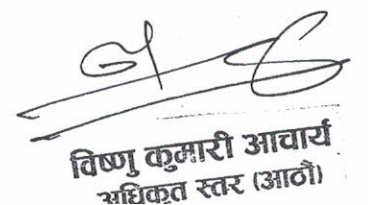 विष्णु कुमारी आचार्य
अधिकृत स्तर (आठौं)